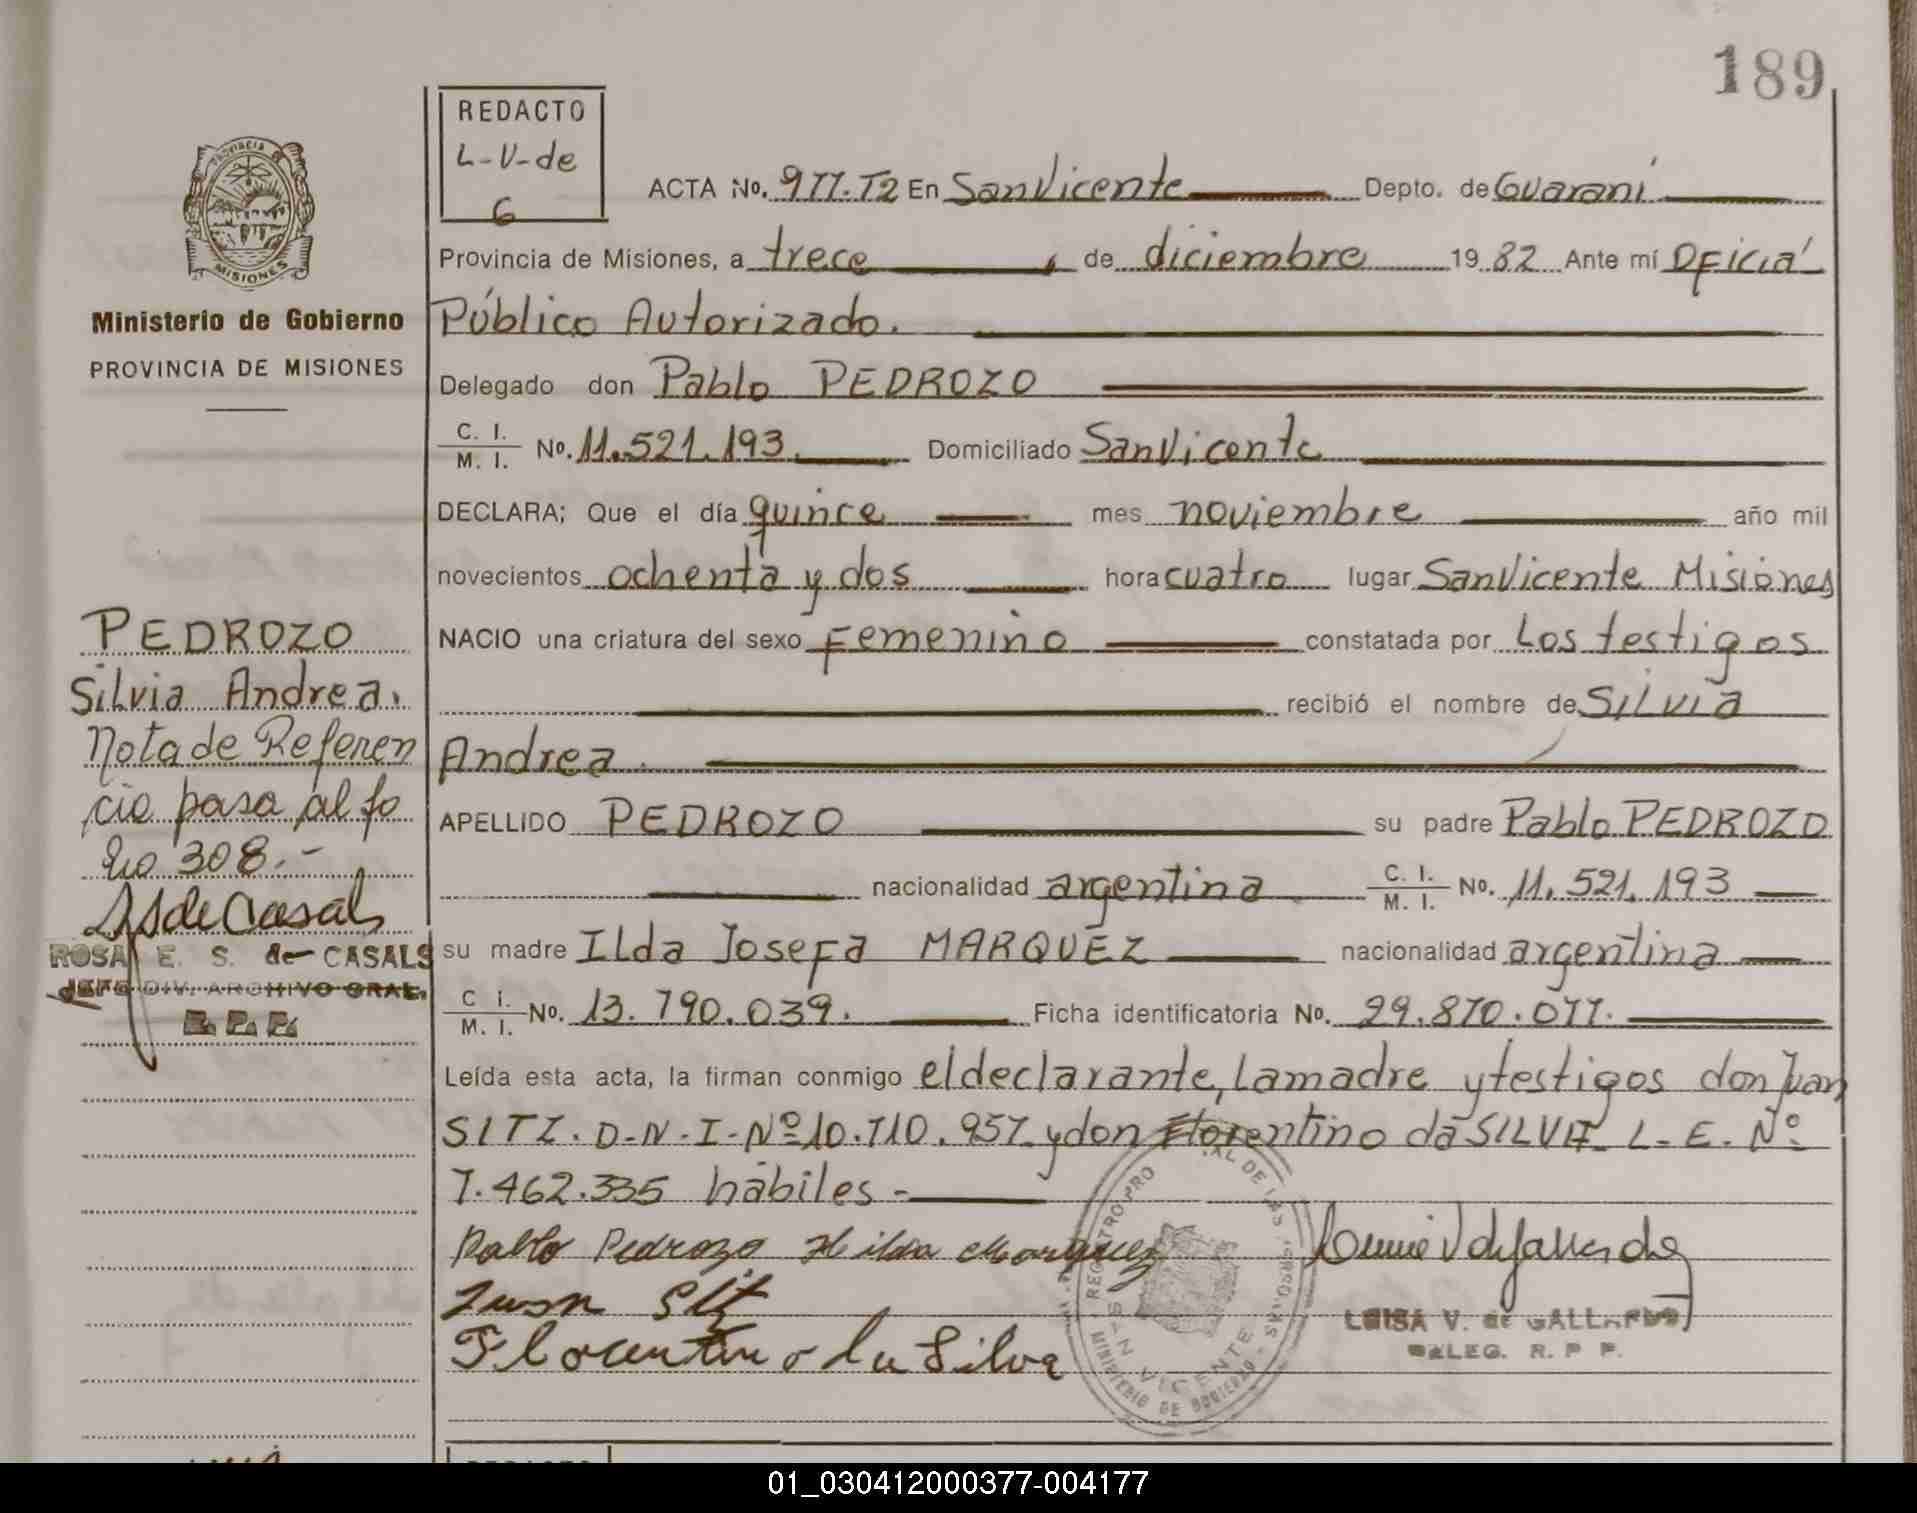 189
REDACTO
L-V-de
6
PROVINCIA
MISIONES
Ministerio de Gobierno
PROVINCIA DE MISIONES
ACTA No. 977.T2 En San Vicente Depto. de Guaraní
Provincia de Misiones, a trece de diciembre 19 82 Ante mí Oficial
Público Autorizado.
Delegado don Pablo PEDROZO
C. I. / M. I. No. 11.521.193. Domiciliado San Vicente
DECLARA; Que el día quince mes noviembre año mil
novecientos ochenta y dos hora cuatro lugar San Vicente Misiones
NACIO una criatura del sexo Femenino constatada por Los testigos
recibió el nombre de Silvia
Andrea.
APELLIDO PEDROZO su padre Pablo PEDROZO
nacionalidad argentina C. I. / M. I. No. 11.521.193
su madre Ilda Josefa MARQUEZ nacionalidad argentina
C. I. / M. I. No. 13.790.039. Ficha identificatoria No. 29.870.077.
Leída esta acta, la firman conmigo el declarante, La madre y testigos don Juan
SITZ. D-N-I-Nº 10.710.957 y don Florentino da SILVA L-E-Nº
7.462.335 hábiles -
Pablo Pedrozo Hilda Marquez
Juan Sitz
Florentino da Silva
LUISA V. de GALLARDO
DELEG. R. P. P.
SAN VICENTE
MINISTERIO DE GOBIERNO
PEDROZO
Silvia Andrea.
Nota de Referen
cia pasa al fo
lio 308.-
ROSA E. S. de CASALS
JEFE DIV. ARCHIVO GRAL.
R. P. P.
01_030412000377-004177